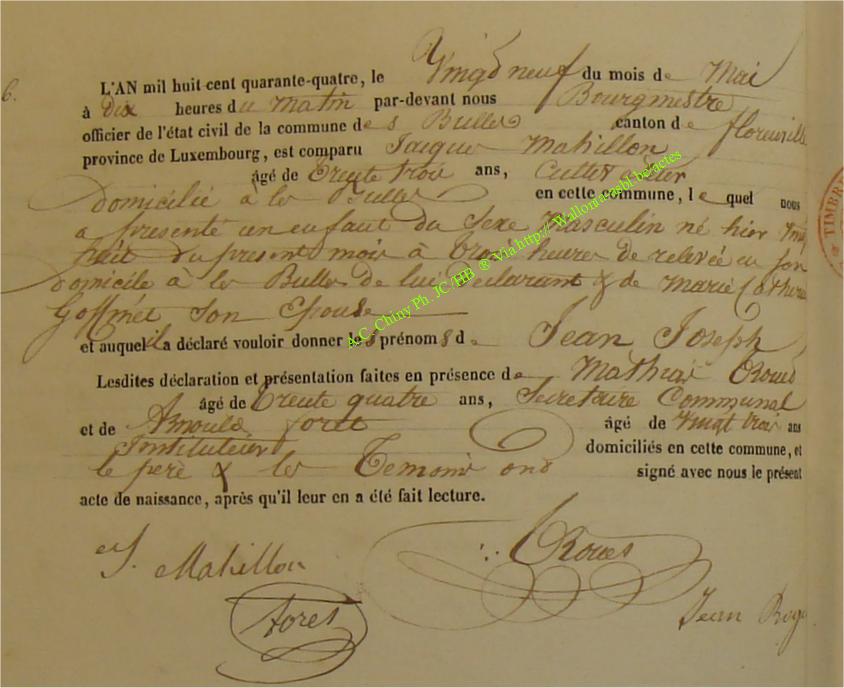 6.
L'AN mil huit cent quarante-quatre, le Vingt neuf du mois de Mai
à dix heures du Matin par-devant nous Bourgmestre
officier de l'état civil de la commune des Bulles canton de florenville
province de Luxembourg, est comparu Jacques Mahillon
âgé de trente trois ans, Cultivateur
domicilié à les Bulles en cette commune, lequel nous
a presenté un enfant du Sexe Masculin né hier Vingt
huit du present mois à trois heures de relevée en son
domicile à les Bulles de lui declarant & de Marie Catherine
Goffinet Son Epouse
et auquel il a déclaré vouloir donner les prénoms de Jean Joseph
Lesdites déclaration et présentation faites en présence de Mathias Roues
âgé de trente quatre ans, Secretaire Communal
et de Arnould foret âgé de vingt trois ans
Instituteur domiciliés en cette commune, et
le père & les Temoins ont signé avec nous le présent
acte de naissance, après qu'il leur en a été fait lecture.
J. Mahillon
Roues
foret
Jean
TIMBRE
A.C. Chiny Ph. JC/HB ® Via http://Wallonia-asbl.be/actes